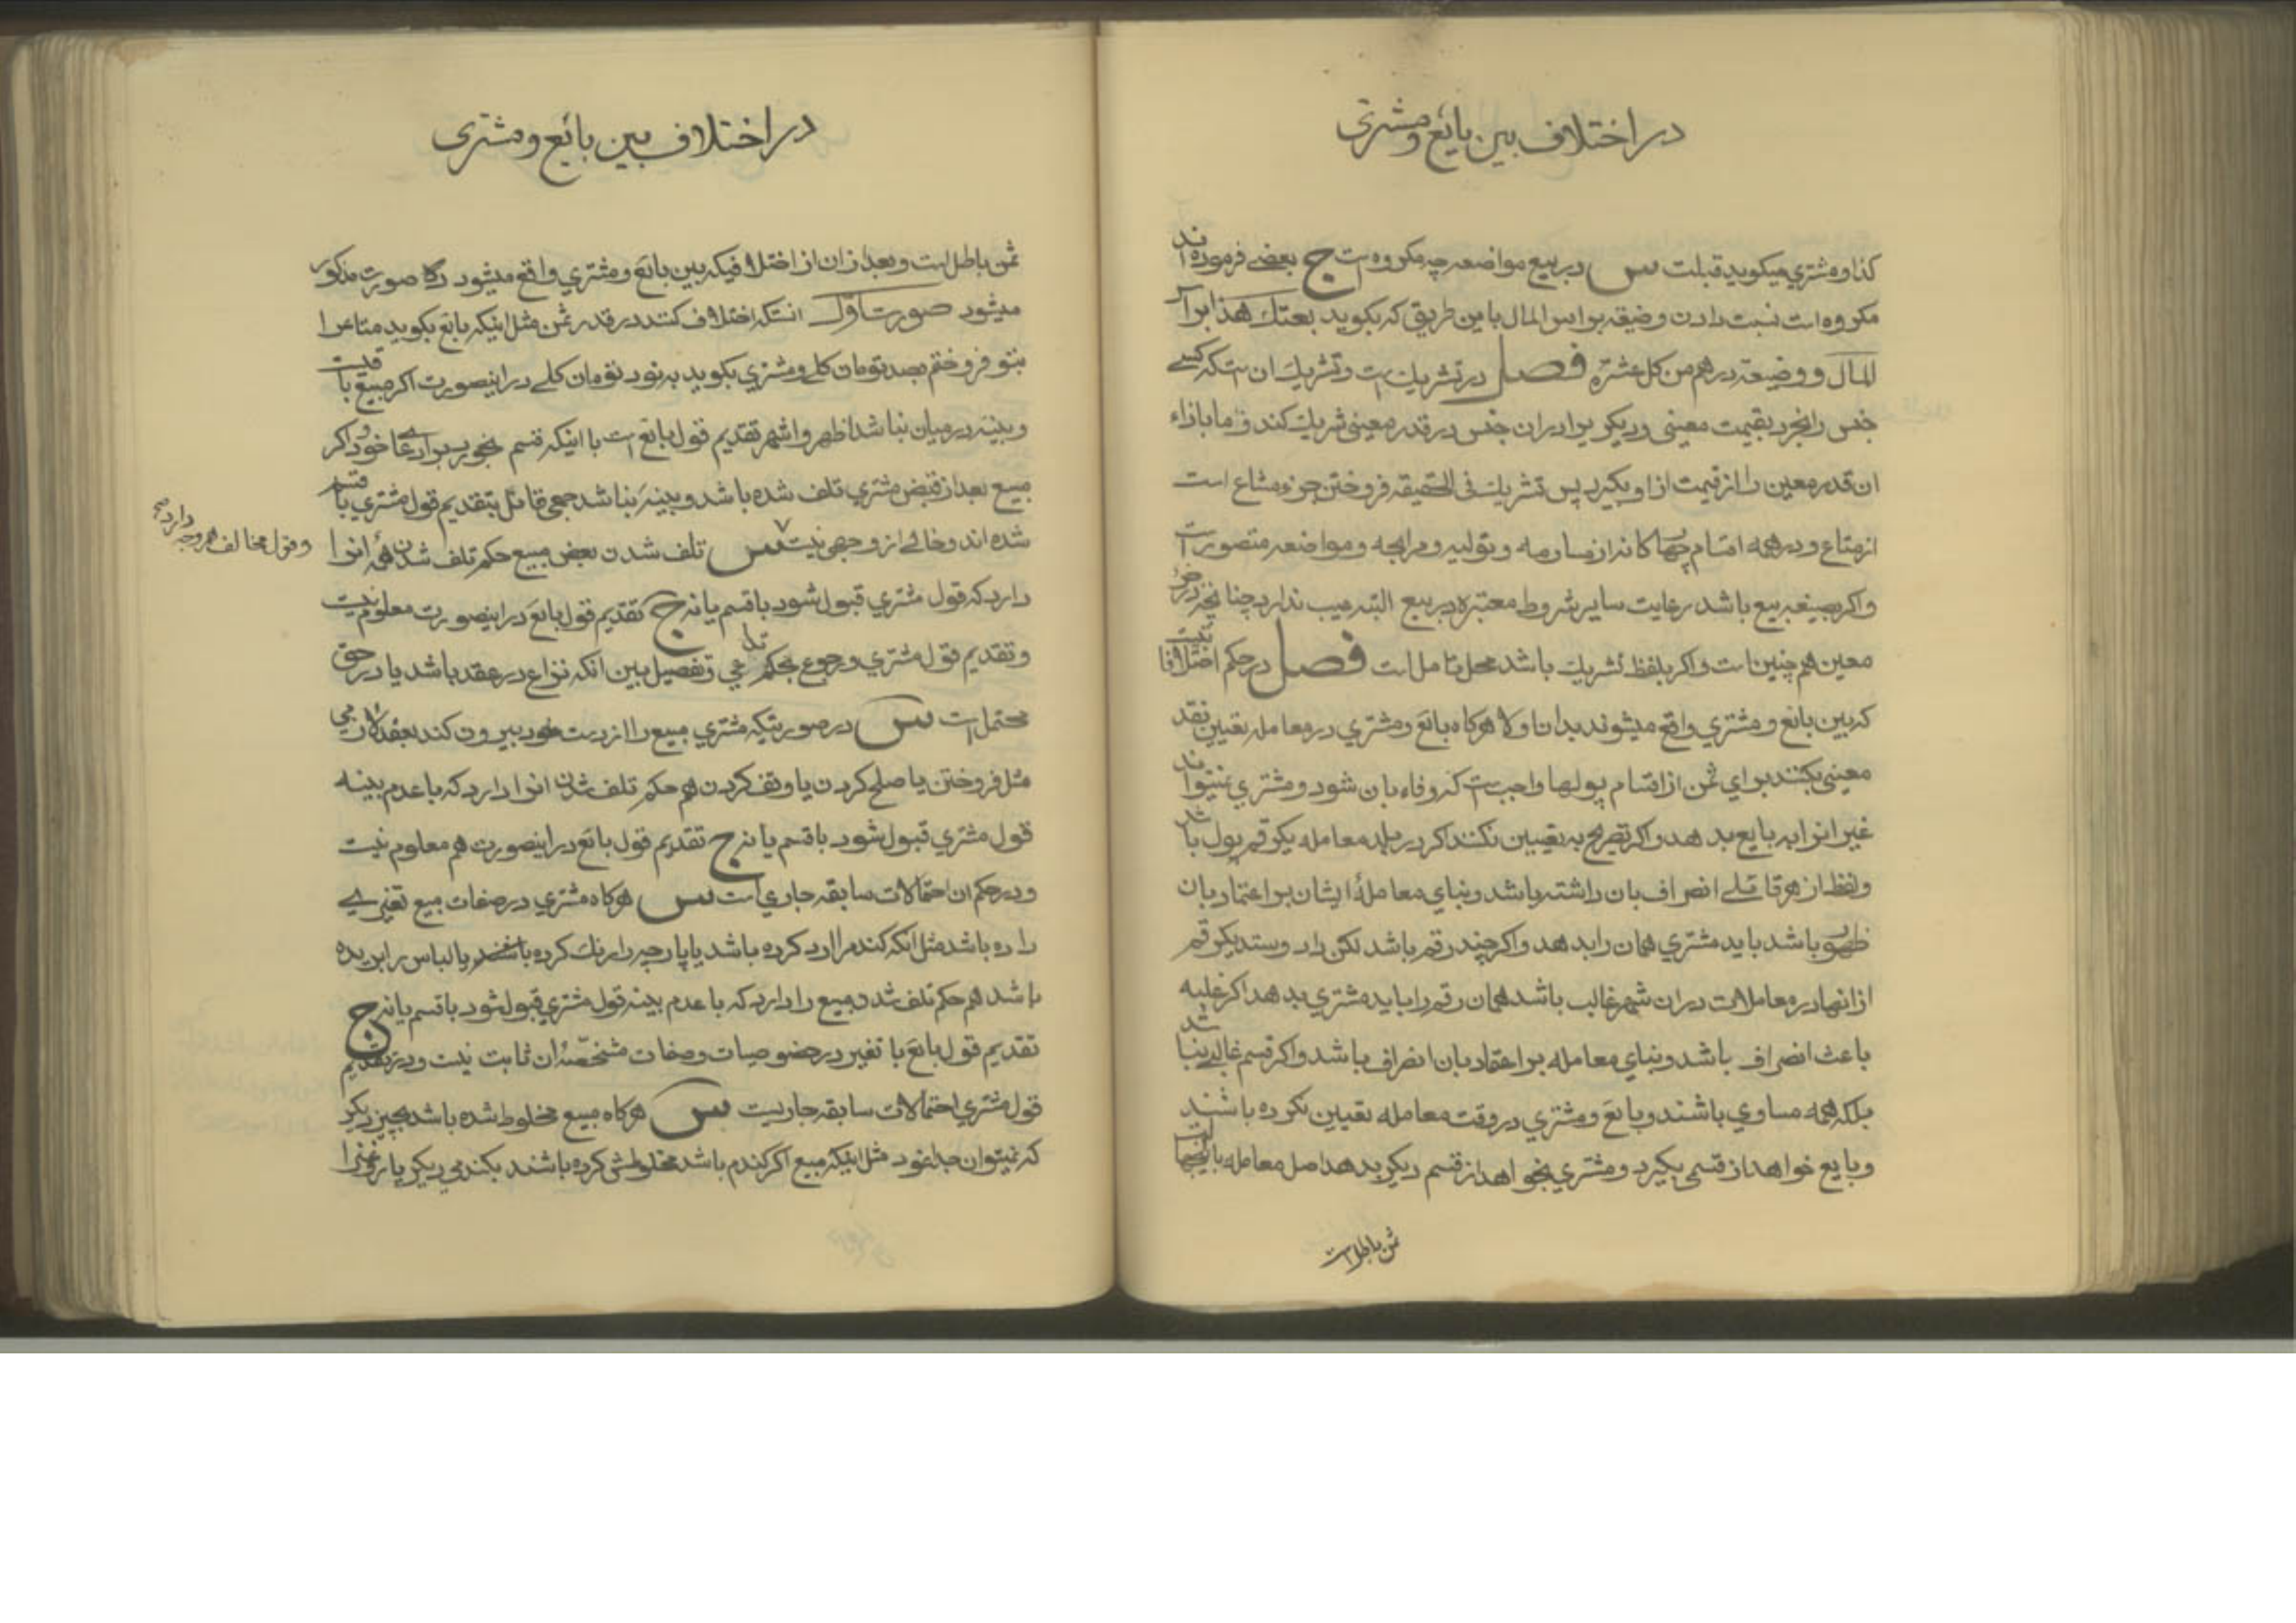 در اختلاف بین بائع و مشتری
کذا و مشتري میکوید قبلت س در بیع مواضعه چه مکروه است ج بعضے فرموده اند
مکروه است نسبت دادن وضیعه براس المال باین طریق که بکوید بعتك هذا براس
المال و وضیعة درهم من کل عشره فصل در تشریك است و تشریك ان استکه کسے
جنس را بخرد بقیمت معینی و دیکریرا در ان جنس در قدر معینی شریك کند و ما بازاء
ان قدر معین را از قیمت از او بکیرد پس تشریك فی الحقیقه فروختن جزء مشاع است
از متاع و در همه اقسام چهارکانه از مساومه و تولیه و مرابحه و مواضعه متصور است
و اکر بصیغه بیع باشد برعایت سایر شروط معتبره در بیع البته عیب ندارد چنانچه در جزء
معین هم چنین است و اکر بلفظ تشریك باشد محل تامل است فصل در حکم اختلافات
که بین بائع و مشتري واقع میشوند بدان اولا هرکاه بائع و مشتري در معامله تعیین نقد
معینی بکنند براي ثمن از اقسام پولها واجب است که وفاء بان شود و مشتري نمیتواند
غیر انرا به بایع بدهد و اکر تصریح به تعیین نکنند اکر در بلد معامله یکرقم پول باشد
و لفظ از هر قائلے انصراف بان داشته باشد و بناي معاملهٔ ایشان بر اعتماد بان
ظهور باشد باید مشتري همان را بدهد و اکر چند رقم باشد لکن داد و ستد یکرقم
از انها در معاملات در ان شهر غالب باشد همان رقم را باید مشتري بدهد اکر غلبه
باعث انصراف باشد و بناي معامله بر اعتماد بان انصراف باشد و اکر قسم غالب نباشد
بلکه همه مساوي باشند و بائع و مشتري در وقت معامله تعیین نکرده باشند
و بایع خواهد از قسمی بکیرد و مشتري بخواهد از قسم دیکر بدهد اصل معامله بانجهالت
ثمن باطل است
در اختلاف بین بائع و مشتری
ثمن باطل است و بعد از ان از اختلافیکه بین بائع و مشتري واقع میشود صورت مذکور
میشود صورت اول انستکه اختلاف کنند در قدر ثمن مثل اینکه بائع بکوید متاعرا
بتو فروختم بصد تومان کلے و مشتري بکوید به نود تومان کلے در اینصورت اکر مبیع باقیست
و بینه در میان نباشد اظهر و اشهر تقدیم قول بائع است با اینکه قسم بخورد بر ادعاے خود و اکر
مبیع بعد از قبض مشتري تلف شده باشد و بینه نباشد جمعی قائل بتقدیم قول مشتري با قسم
شده اند و خالے از وجهی نیست س تلف شدن بعض مبیع حکم تلف شدن همهٔ انرا
و قول مخالف هم وجه دارد صح
دارد که قول مشتري قبول شود با قسم یا نه ج تقدیم قول بائع در اینصورت معلوم نیست
و تقدیم قول مشتري و رجوع بحکم تداعي و تفصیل بین انکه نزاع در عقد باشد یا در حق
محتمل است س در صورتیکه مشتري مبیع را از دست خود بیرون کند بعقد لازمی
مثل فروختن یا صلح کردن یا وقف کردن هم حکم تلف شدن انرا دارد که با عدم بینه
قول مشتري قبول شود با قسم یا نه ج تقدیم قول بائع در اینصورت هم معلوم نیست
و در حکم ان احتمالات سابقه جاري است س هرکاه مشتري در صفات مبیع تغییرے
داده باشد مثل انکه کندم را ارد کرده باشد یا پارچه را رنك کرده باشد یا لباس را بریده
باشد هم حکم تلف شدن مبیع را دارد که با عدم بینه قول مشتري قبول شود با قسم یا نه ج
تقدیم قول بائع با تغییر در خصوصیات و صفات مشخصهٔ ان ثابت نیست و در تقدیم
قول مشتري احتمالات سابقه جاریست س هرکاه مبیع مخلوط شده باشد بچیز دیکر
که نمیتوان جدا نمود مثل اینکه مبیع اکر کندم باشد مخلوطش کرده باشند بکندمی دیکر یا روغنرا